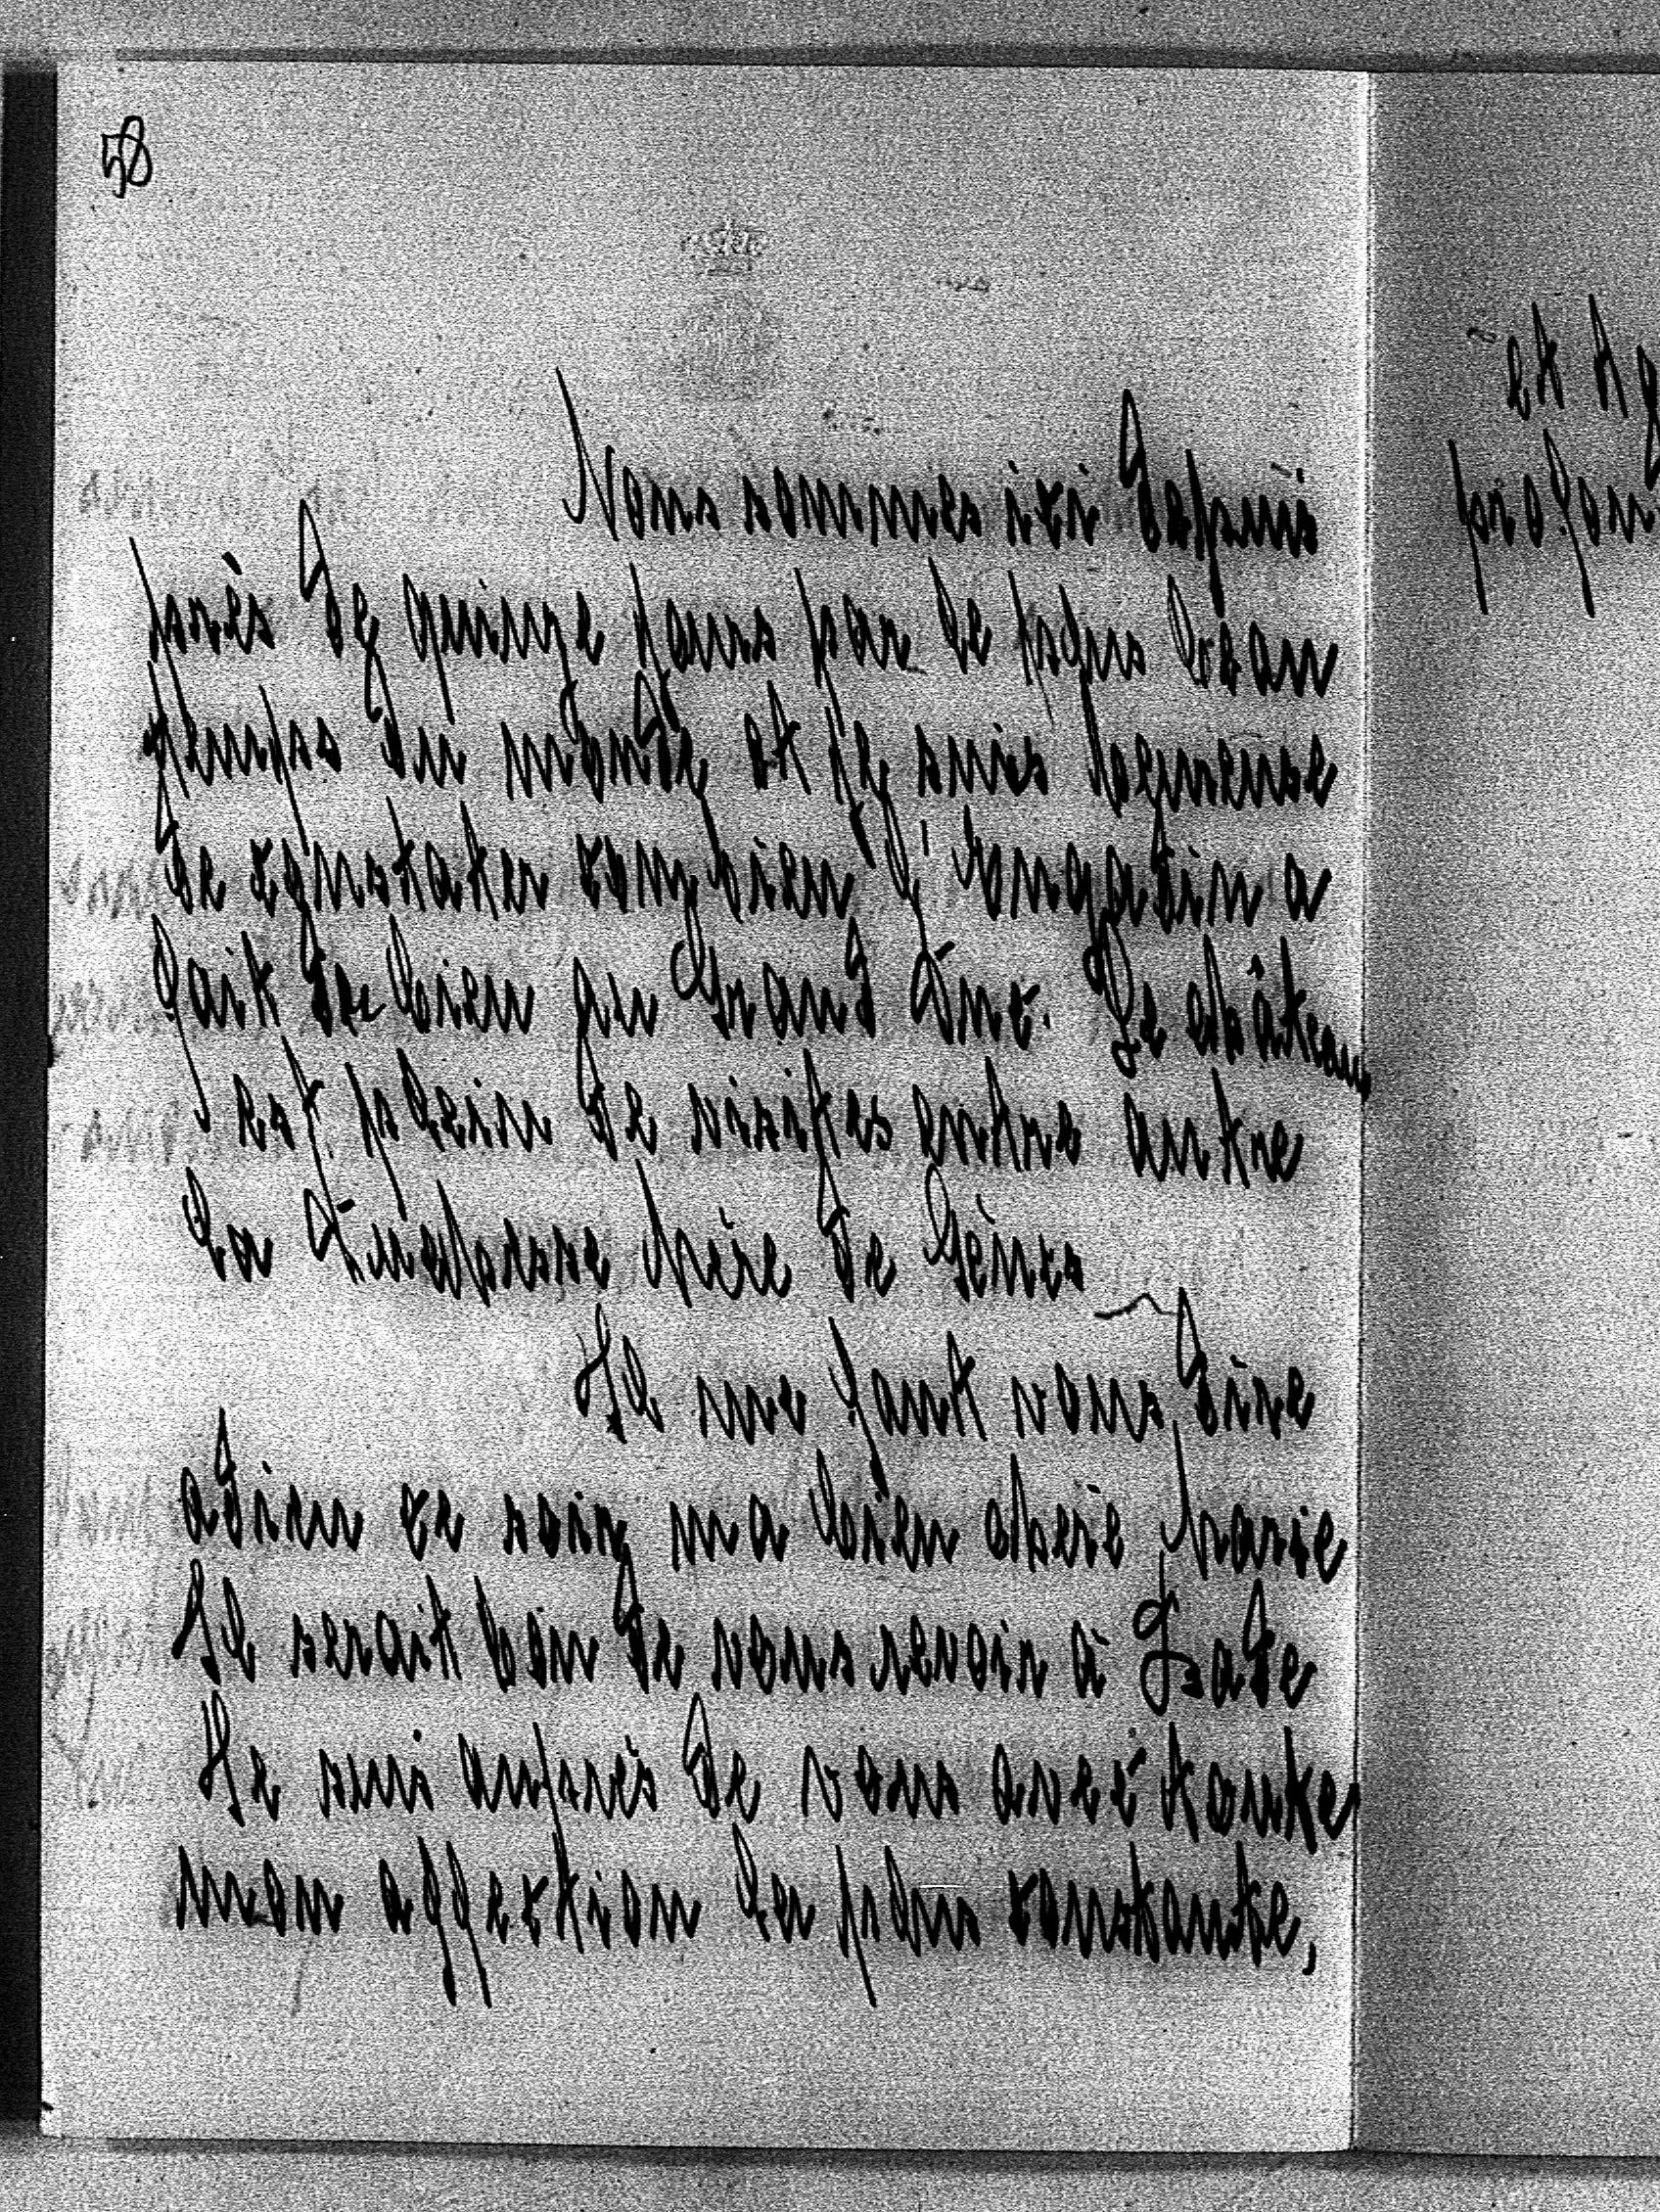 58
Nous sommes ici depuis
près de quinze jours par le plus beau
temps du monde et je suis heureuse
de constater combien l'Engadin a
fait de bien au Grand Duc. Le château
est plein de visites entre autre
la Duchesse Mère de Gênes
Il me faut vous dire
adieu ce soir, ma bien chere Marie
Il serait bon de vous revoir à
Je suis auprès de vous avec toute
mon affection la plus constante,
et